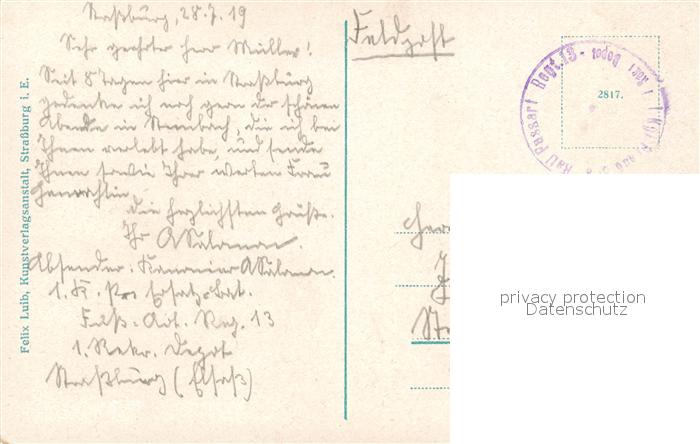 Straßburg, 28.7.19
Sehr geehrter Herr Müller!
Seit 8 Tagen hier in Straßburg
gedenke ich noch gern der schönen
Abende in Steinbach, die ich bei
Ihnen verlebt habe, und sende
Ihnen sowie Ihrer werten Frau
Gemahlin
die herzlichsten Grüße.
Ihr ASalomon.
Absender: Kanonier ASalomon.
1. K. Ersatz-Bat.
Fuß-Art. Reg. 13
1. Rekr. Depot
Straßburg (Elsaß)
Felix Luib, Kunstverlagsanstalt, Straßburg i. E.
Feldpost
2817.
Regt. 13 - Depot
privacy protection
Datenschutz